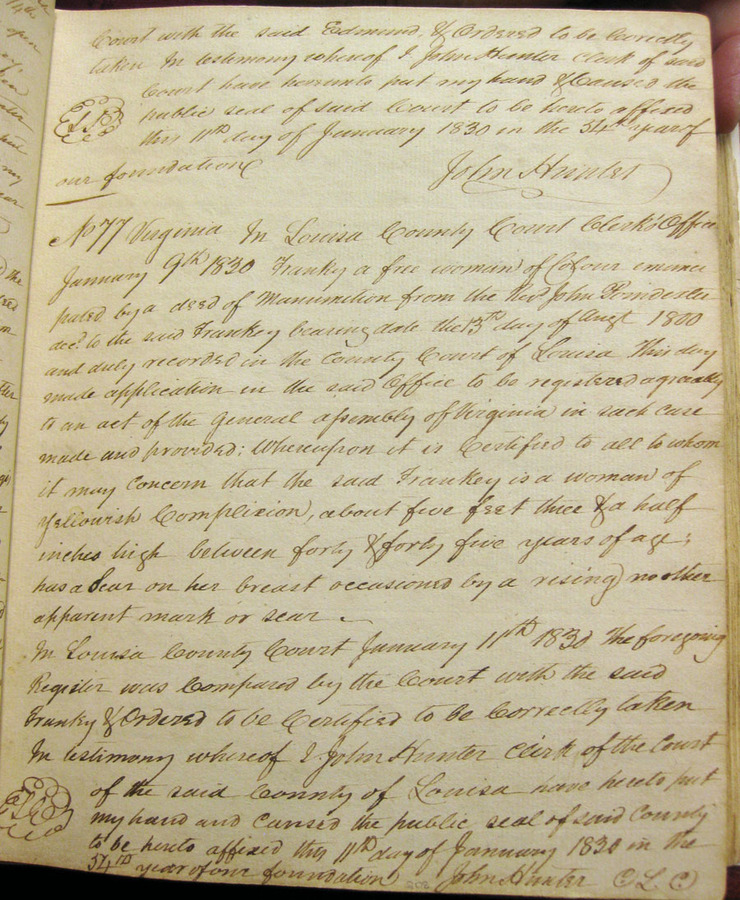 Court with the said Edmund, & Ordered to be Correctly
taken In testimony whereof I John Hunter clerk of said
Court have hereunto put my hand & Caused the
public seal of said Court to be hereto affixed
this 11th day of January 1830 in the 54th year of
our foundation
John Hunter
No 77 Virginia In Louisa County Court Clerk's Office
January 9th 1830 Franky a free woman of Colour emanci
pated by a deed of Manumition from the Revd John Poindexter
decd to the said Frankey bearing date the 13th day of Augt 1800
and duly recorded in the County Court of Louisa This day
made application in the said Office to be registered agreeably
to an act of the General assembly of Virginia in such case
made and provided; Whereupon it is Certified to all to whom
it may Concern that the said Frankey is a woman of
Yellowish Complixion, about five feet three & a half
inches high between forty & forty five years of age;
has a Scar on her breast occasioned by a rising no other
apparent mark or scar
In Louisa County Court January 11th 1830 The foregoing
Register was Compared by the Court with the said
Franky & Ordered to be Certified to be Correctly taken
In testimony whereof I John Hunter Clerk of the Court
of the said County of Louisa have hereto put
my hand and Caused the public seal of said County
to be hereto affixed this 11th day of January 1830 in the
54th year of our foundation John Hunter C L C